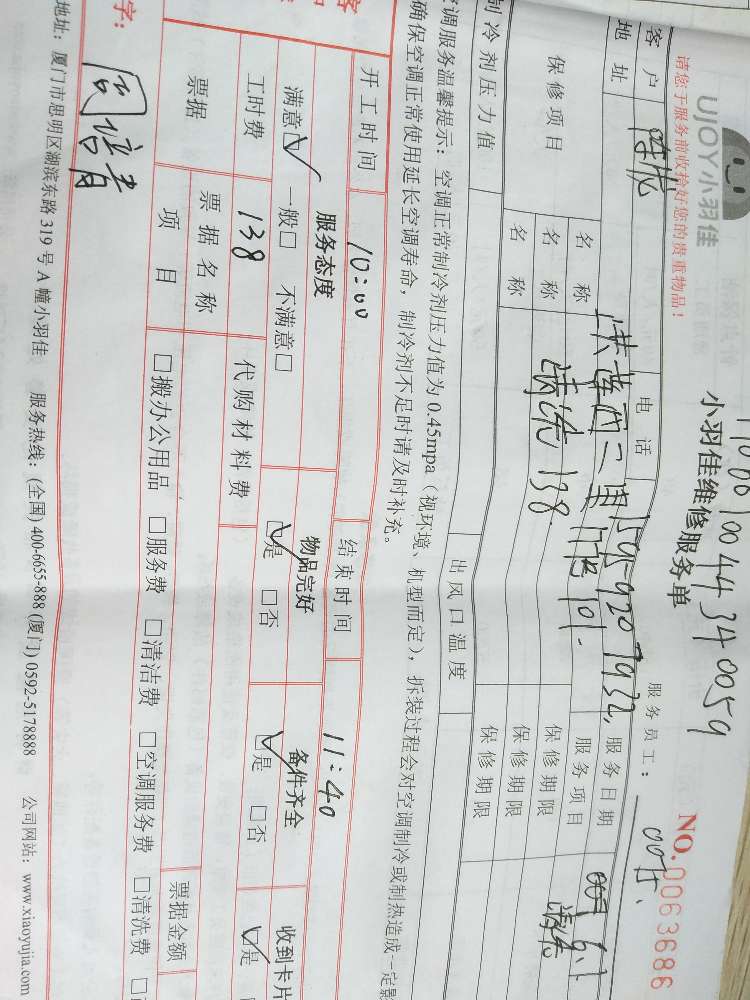 UJOY小羽佳
小羽佳维修服务单
NO.0063686
请您于服务前收拾好您的贵重物品！
服务员工：
客户 电话 服务日期
地址 服务项目
保修项目 名称 清洗 138 保修期限
名称 保修期限
名称 保修期限
制冷剂压力值 出风口温度
空调服务温馨提示：空调正常制冷剂压力值为0.45mpa（视环境、机型而定），拆装过程会对空调制冷或制热造成一定影
确保空调正常使用延长空调寿命，制冷剂不足时请及时补充。
开工时间 10:00 结束时间 11:40
服务态度 物品完好 备件齐全 收到卡片
满意☑ 一般□ 不满意□ ☑是 □否 ☑是 □否 ☑是
工时费 138 代购材料费
票据 票据名称 票据金额
项目 □搬办公用品 □服务费 □清洁费 □空调服务费 □清洗费
字：
地址：厦门市思明区湖滨东路319号A幢小羽佳 服务热线：(全国) 400-6655-888 (厦门) 0592-5178888 公司网站：www.xiaoyujia.com